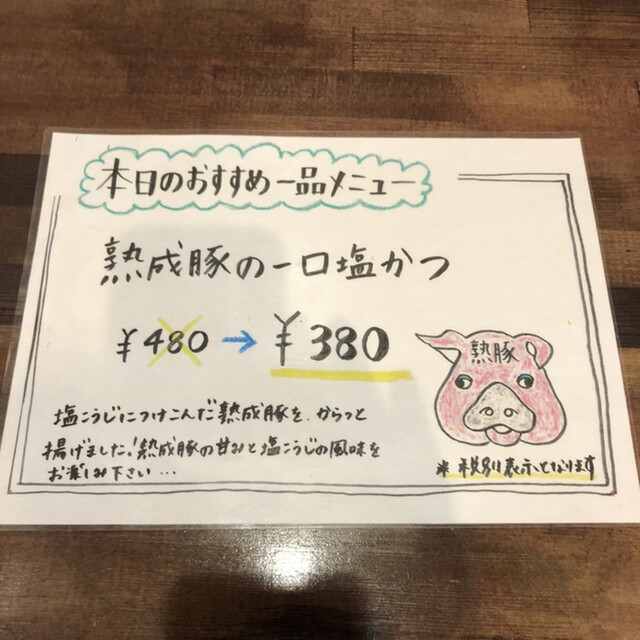 本日のおすすめ一品メニュー
熟成豚の一口塩かつ
¥480→¥380
熟豚
塩こうじにつけこんだ熟成豚を、からっと
揚げました！熟成豚の甘みと塩こうじの風味を
お楽しみ下さい…
※税別表示となります